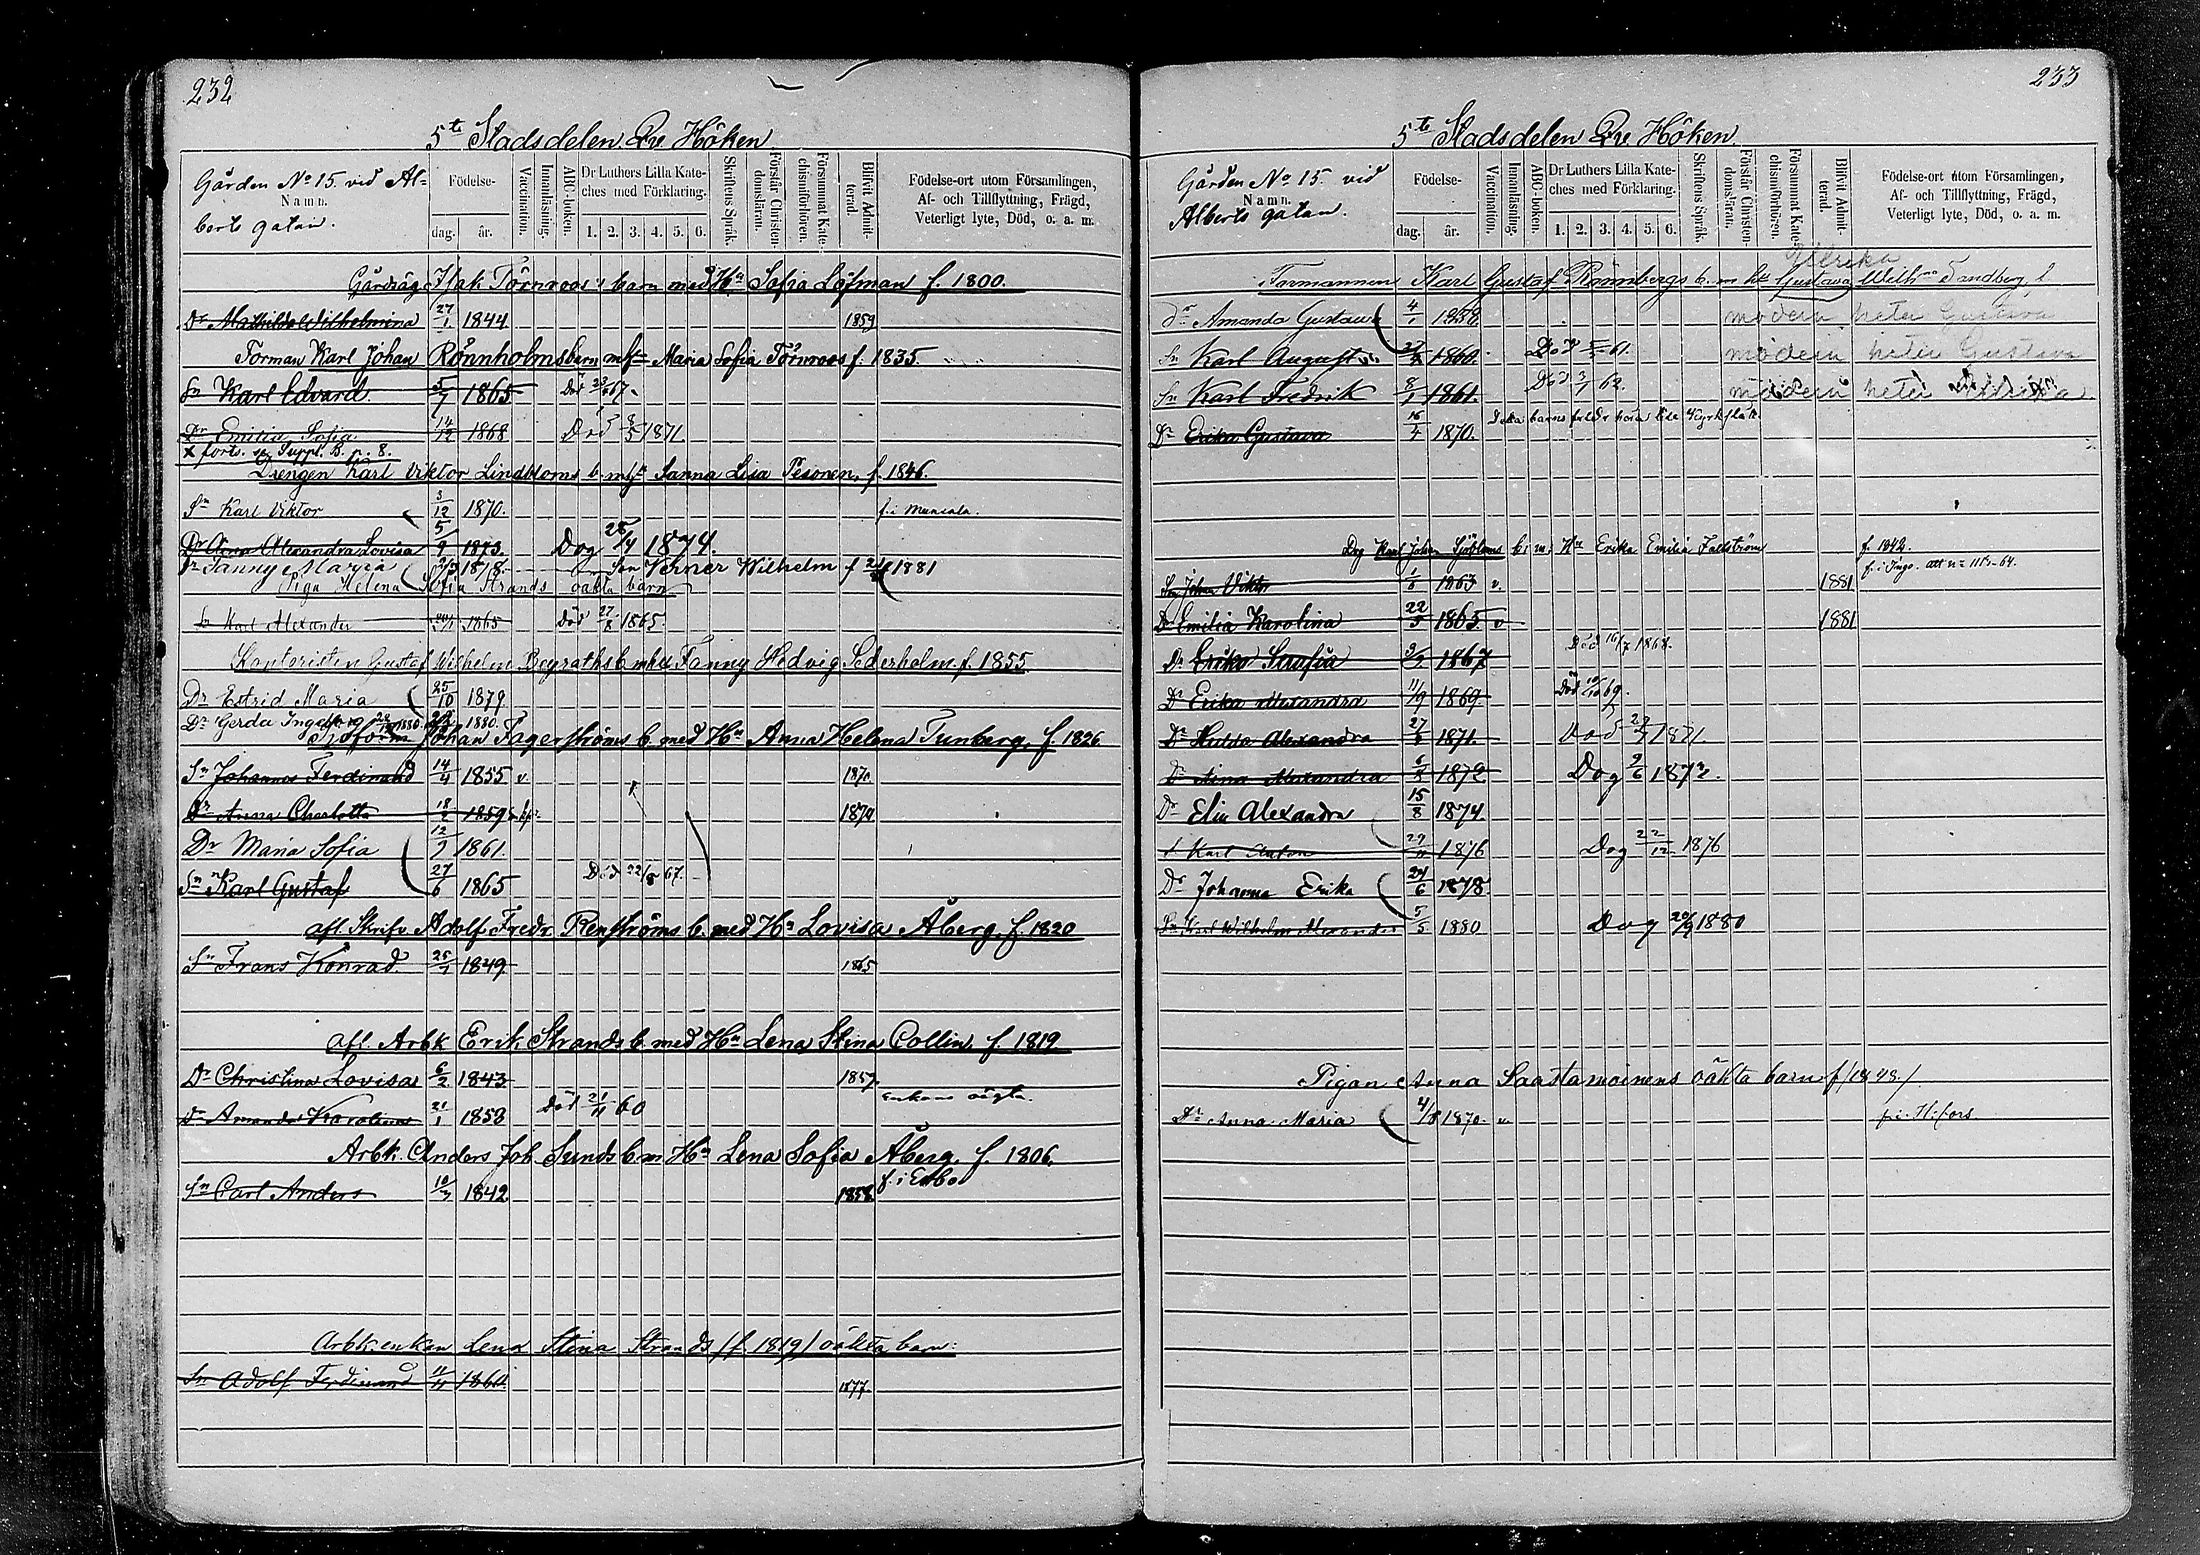 232
5te Stadsdelen Qv. Höken
Gården No 15. vid Al=
Namn.
berts gatan.
Födelse-
dag. år.
Vaccination.
Innanläsning.
ABC-boken.
Dr Luthers Lilla Kate-
ches med Förklaring.
1. 2. 3. 4. 5. 6.
Skriftens Språk.
Förstår Christen-
domsläran.
Försummat Kate-
chismiförhören.
Blifvit Admit-
terad.
Födelse-ort utom Församlingen,
Af- och Tillflyttning, Frägd,
Veterligt lyte, Död, o. a. m.
Gårdsäg. Isak Törnroos's barn med Hn Sofia Löfman f. 1800.
Dr Mathilda Wilhelmina 27/1 1844 1859
Forman Karl Johan Rönnholms barn m hn Maria Sofia Törnroos f. 1835.
Sn Karl Edvard 5/7 1865 Död 67
Dr Emilia Sofia 14/12 1868 Död 1871
x forts. se Suppl. B. p. 8.
Drengen Karl Viktor Lindbloms b. m hn Sanna Lisa Pesonen, f. 1846.
Sn Karl Viktor 3/12 1870. f. i Munsala.
Dr Aina Alexandra Lovisa 5/9 1873. Dog 25/4 1874.
Dr Fanny Maria 1878. Son Verner Wilhelm f 1881
Pigu Helena Sofia Strands oäkta barn
Sn Karl Alexander 1865 död 27/8 1865.
Kontoristen Gustaf Wilhelm Boyraths b m hu Fanny Hedvig Sederholm f. 1855
Dr Estrid Maria 25/10 1879
Dr Gerda 1880.
Johan Fagerströms b. med Hn Anna Helena Tunberg, f. 1826
Sn Johannes Ferdinand 14/4 1855 v 1870
Dr Anna Charlotta 18/2 1859 1874
Dr Maria Sofia 12/7 1861.
Sn Karl Gustaf 27/6 1865 Död 22/8 67.
afl. Skrifv Adolf Fredr Renströms b. med Hn Lovisa Åberg, f. 1820
Sn Frans Konrad 1849 1865
afl. Arbk Erik Strands b. med Hn Lena Stina Collin f. 1819
Dr Christina Lovisa 6/2 1843 1857
Dr Amanda Karolina 21/1 1853 död 21/11 60 enkans oägta.
Arbk. Anders Joh. Sunds b m Hn Lena Sofia Åberg. f. 1806.
Sn Carl Anders 10/7 1842 1858 f. i Esbo
Arbk.enkan Lena Stina Strands (f. 1819) oäkta barn:
Sn Adolf Ferdinand 11/11 1860 1877
233
5te Stadsdelen Qv. Höken
Gården No 15. vid
Namn.
Alberts gatan.
Födelse-
dag. år.
Vaccination.
Innanläsning.
ABC-boken.
Dr Luthers Lilla Kate-
ches med Förklaring.
1. 2. 3. 4. 5. 6.
Skriftens Språk.
Förstår Christen-
domsläran.
Försummat Kate-
chismiförhören.
Blifvit Admit-
terad.
Födelse-ort utom Församlingen,
Af- och Tillflyttning, Frägd,
Veterligt lyte, Död, o. a. m.
Ulrika
Formannen Karl Gustaf Rönnbergs b. m hu Gustava Wilhna Sandberg
Dr Amanda Gustava 4/1 modern heter Gustava
Sn Karl August 1860. Död 61. modern heter Gustava
Sn Karl Fredrik 8/1 1861. Död 3/1 62. modern heter Ulrika
Dr Erika Gustava 16/4 1870.
Karl Johan Sjöbloms b. m. Hn Erika Emilia Fallström f. 1842.
Sn Johan Viktor 1863 v. 1881
Dr Emilia Karolina 22/5 1865 v 1881
Dr Erika Serafia 1867 Död 16/7 1868.
Dr Erika Alexandra 11/9 1869 Död 69.
Dr Hulda Alexandra 1871. Död 1871
Dr Aina Alexandra 1872 Dog 9/6 1872.
Dr Elin Alexandra 15/8 1874
Karl Anton 1876 Dog 22/12 1876
Dr Johanna Erika 24/6 1878
Sn Karl Wilhelm Alexander 5/5 1880 Dog 20/9 1880
Pigan Anna Saastamoinens oäkta barn f/1848./
Dr Anna Maria 4/8 1870. v. f. i H:fors